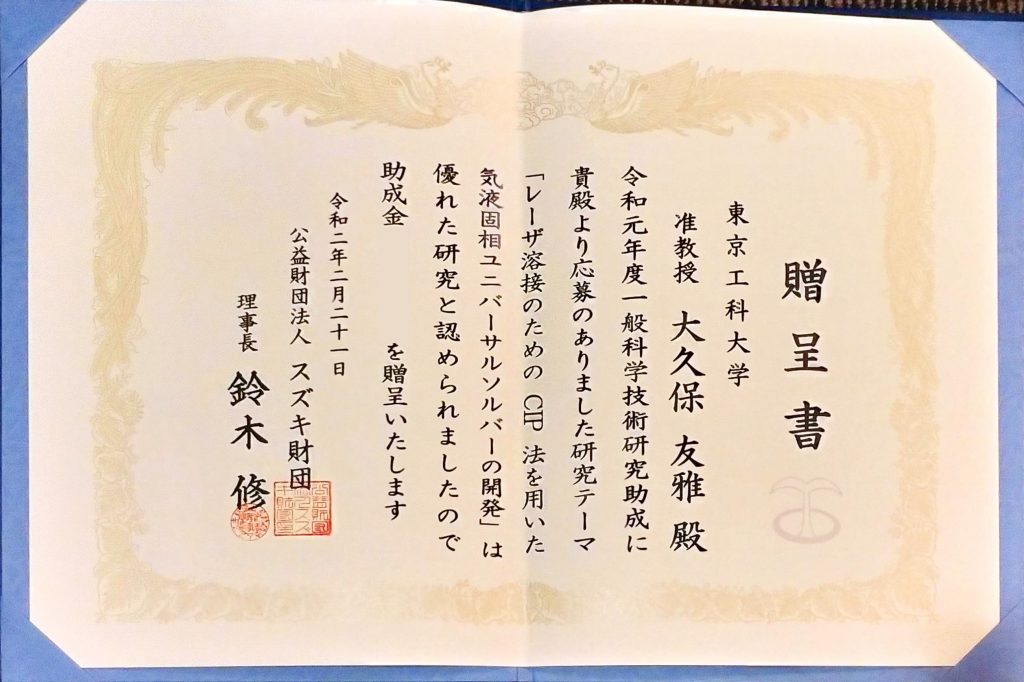 贈呈書
東京工科大学
准教授 大久保 友雅 殿
令和元年度一般科学技術研究助成に
貴殿より応募のありました研究テーマ
「レーザ溶接のための CIP 法を用いた
気液固相ユニバーサルソルバーの開発」は
優れた研究と認められましたので
助成金 を贈呈いたします
令和二年二月二十一日
公益財団法人 スズキ財団
理事長 鈴木 修